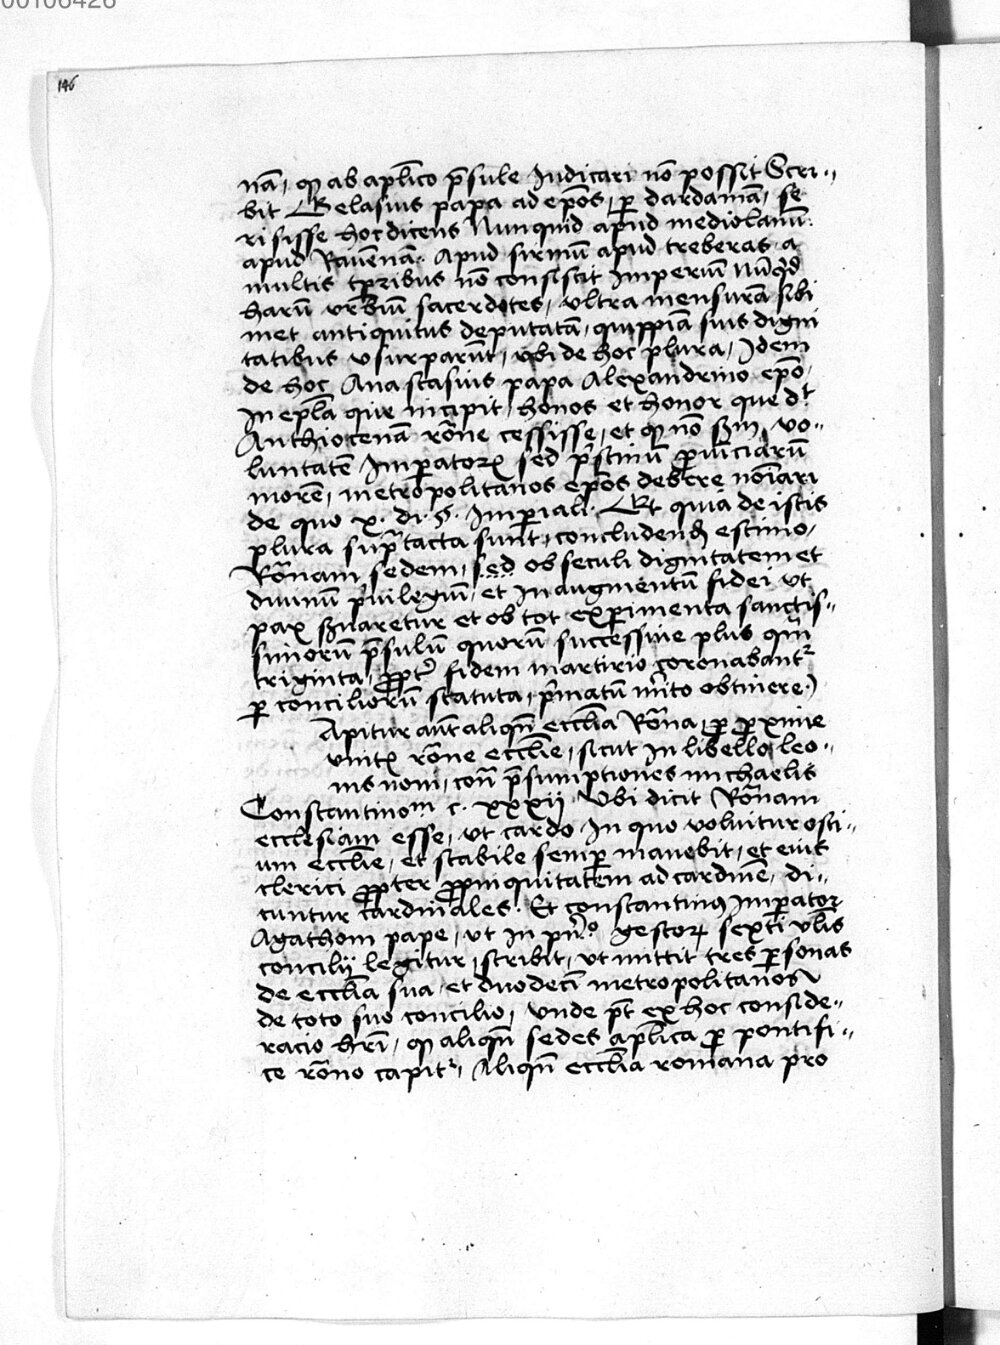 00106426
146
nā, ꝙ ab aplico p̄sule Iudicari nō possit Scri-
bit Gelasius papa ad epōs, ꝑ dardaniā, se
ri sisse hoc dicens Nunquid apud mediolanū.
apud Rauēnā. Apud sirmiū apud treberas, a
multis tꝑribus nō consistit Imperiū Nūq̄d
harū vrbiū sacerdotes, vltra mensurā sibi
met antiquitus deputatā, quippiā suis digni
tatibus vsurparūt, vbi de hoc plura, Idem
de hoc Anastasius papa Alexandrino epō,
In epl̄a que incipit, honos et honor que dt
Anthiocenā rōne cessisse, et ꝙ nō scdm, vo-
luntatē Imperatorꝝ sed p̄stinū ꝓuīciarū
morē, metropolitanos epōs debere noīari
de quo x. di. §. Imperiali. Et quia de istis
plura sup̄ tacta sunt, concludend̄ estimo,
Rōnam sedem, sed ob seculi dignitatem et
diuinū p̄uilegiū, et In augmentū fidei vt
pax seruaretur et ob tot experimenta sanctis-
simorū p̄sulū quorū successiue plus qm̄
triginta, ꝓpt̄ fidem martirio coronabantr
ꝑ conciliorū statuta, p̄matū m̄ito obtinere.
Apitur aūt aliqn̄ eccl̄ia Rōna, ꝑ ꝓxime
vnitꝭ rōne eccl̄ie, sicut In libello leo-
nis noni, con̄ p̄sumptiones michaelis
Constantinom c. xxxii Vbi dicit Rōnam
ecclesiam esse, vt cardo In quo voluitur osti-
um eccl̄ie, et stabile semꝑ manebit, et eius
clerici ꝓpter ꝓpinquitatem ad cardinē, di-
cuntur cardinales. Et constantinꝰ Imperator
Agathoni pape, vt in pn̄° gestorꝝ sexti vl̄is
concilij legitur, scribit, vt mittit tres personas
de eccl̄ia sua, et duodecī metropolitanos
de toto suo concilio, vnde pt̄ ex hoc conside-
racio hr̄i, ꝙ aliqn̄ sedes apl̄ica ꝑ pontifi-
ce rōno capitr, Aliqn̄ eccl̄ia romana pro